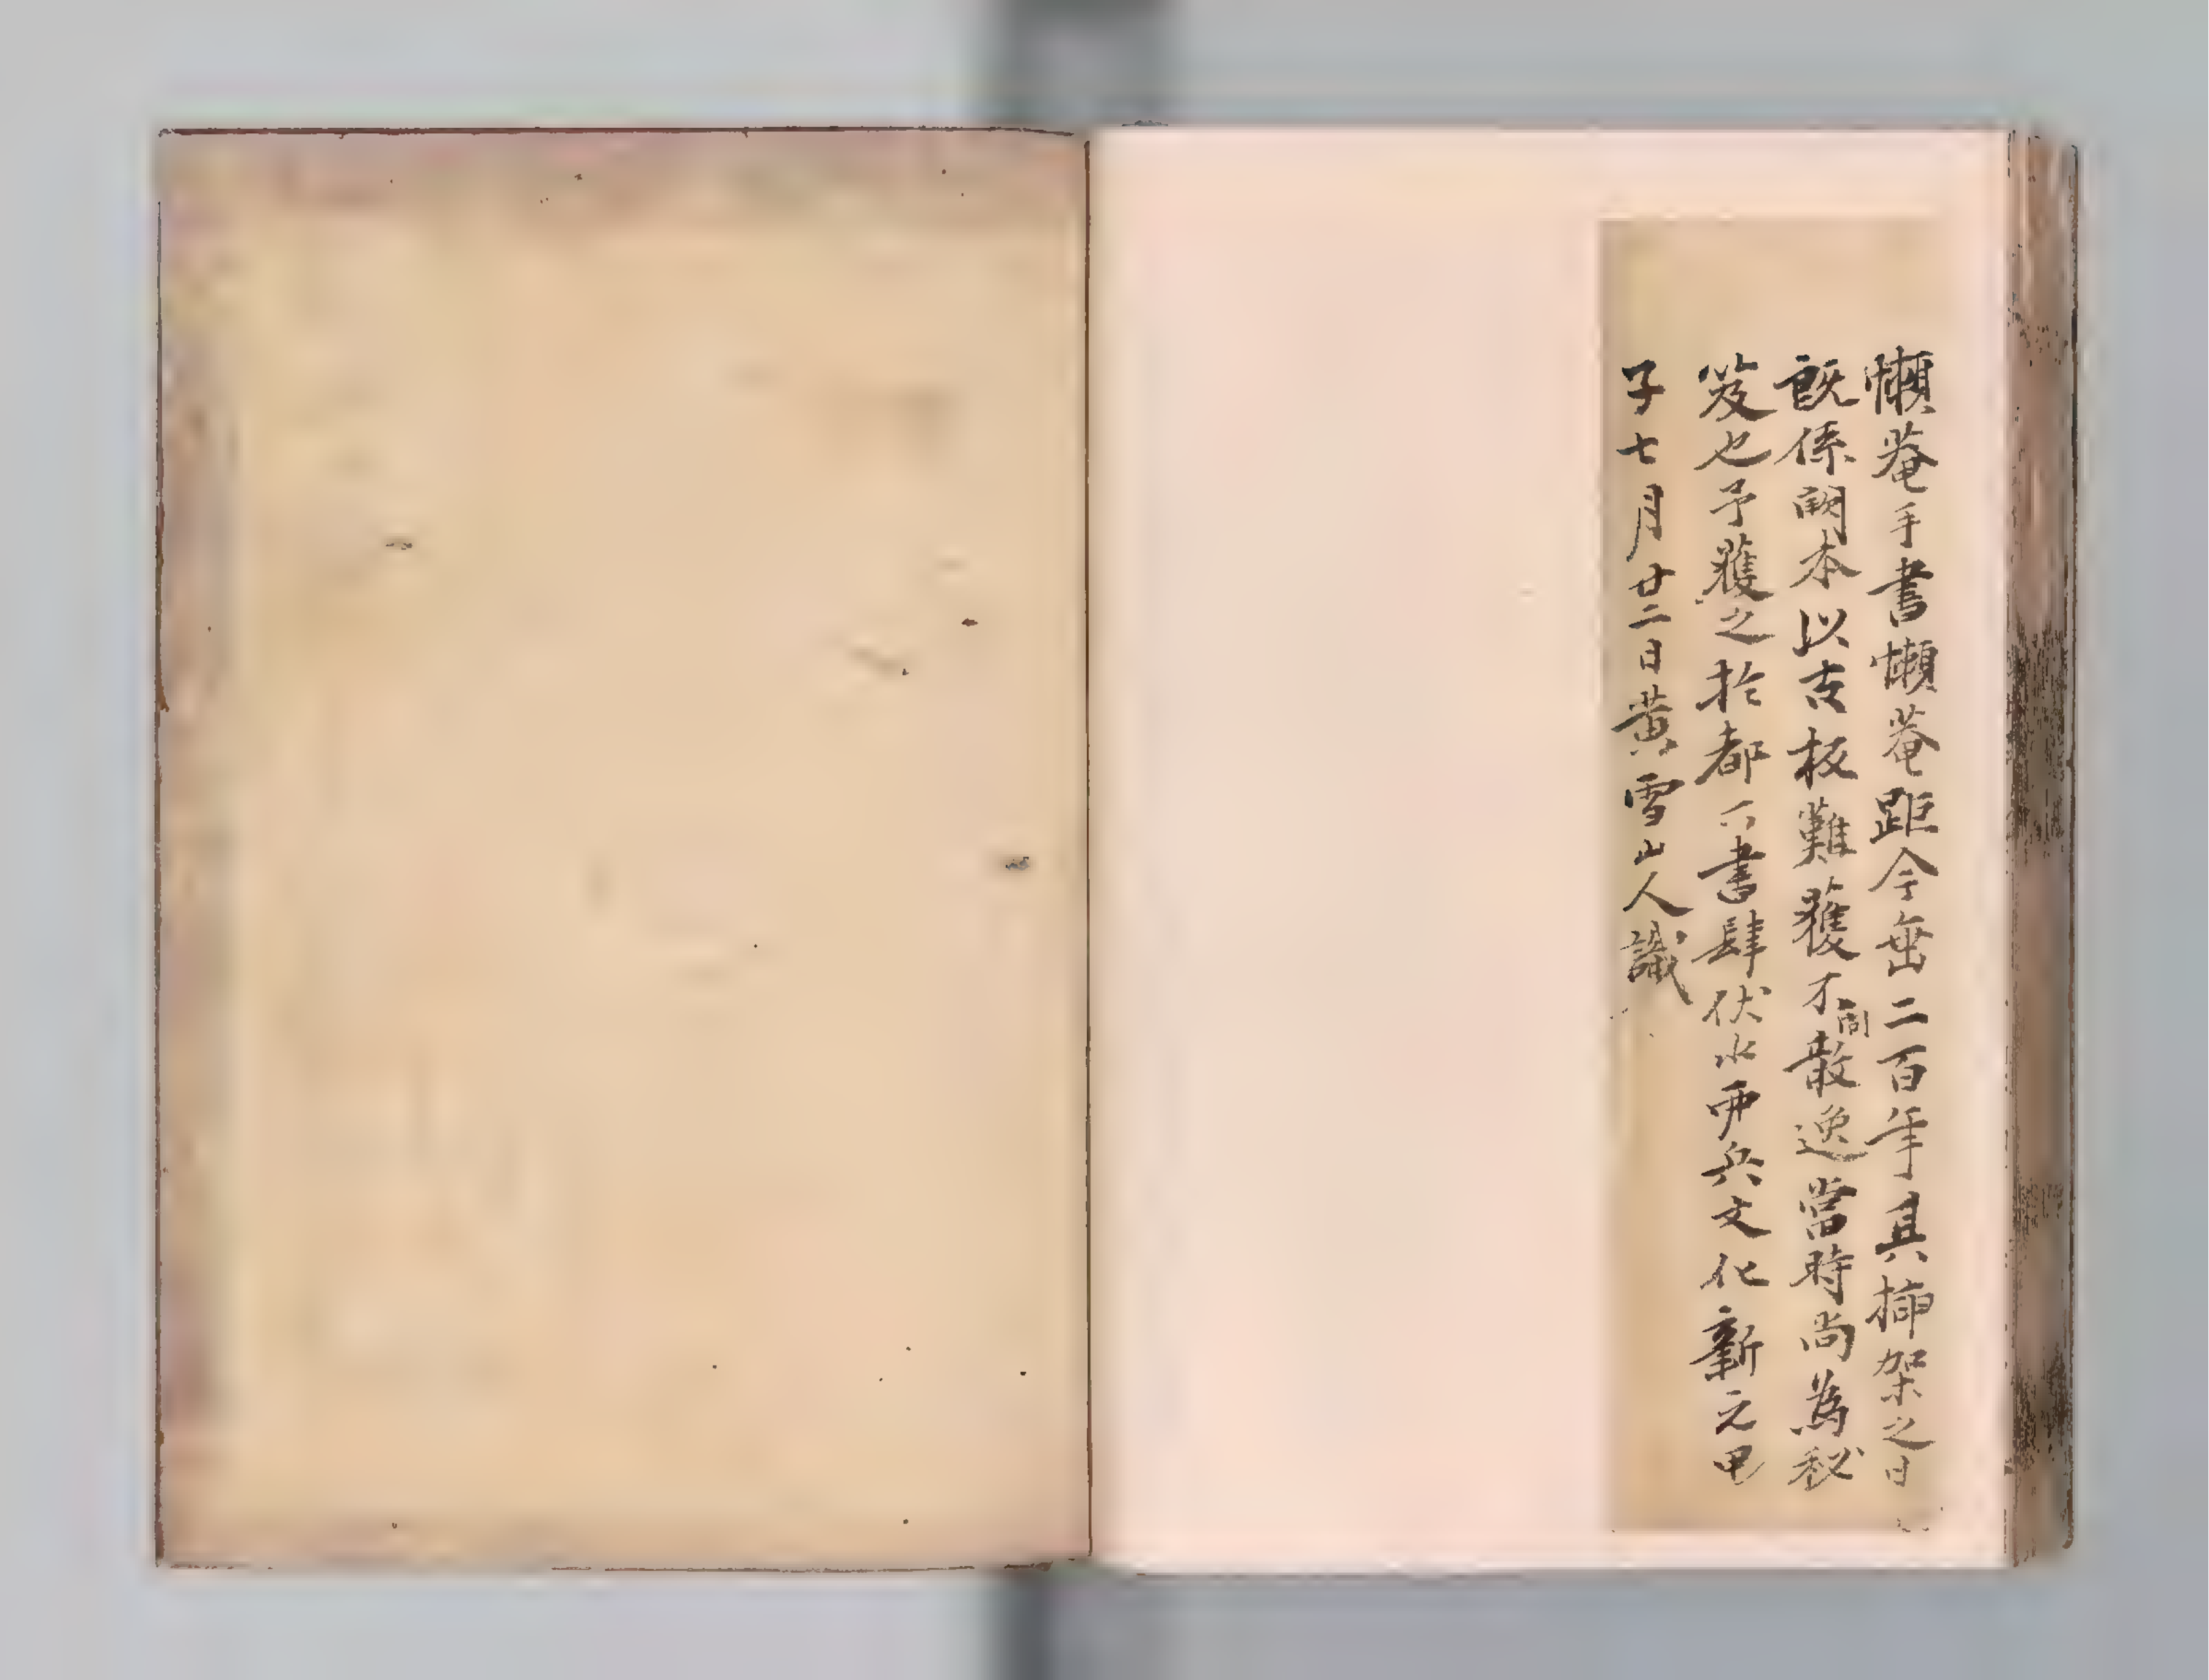 懶菴手書懶菴距今垂二百年其揷架之日
既係闕本以古板難獲不問散逸當時尚為秘
笈也予獲之於都下書肆伏水兵文化新元甲
子七月廿二日黄雪山人識